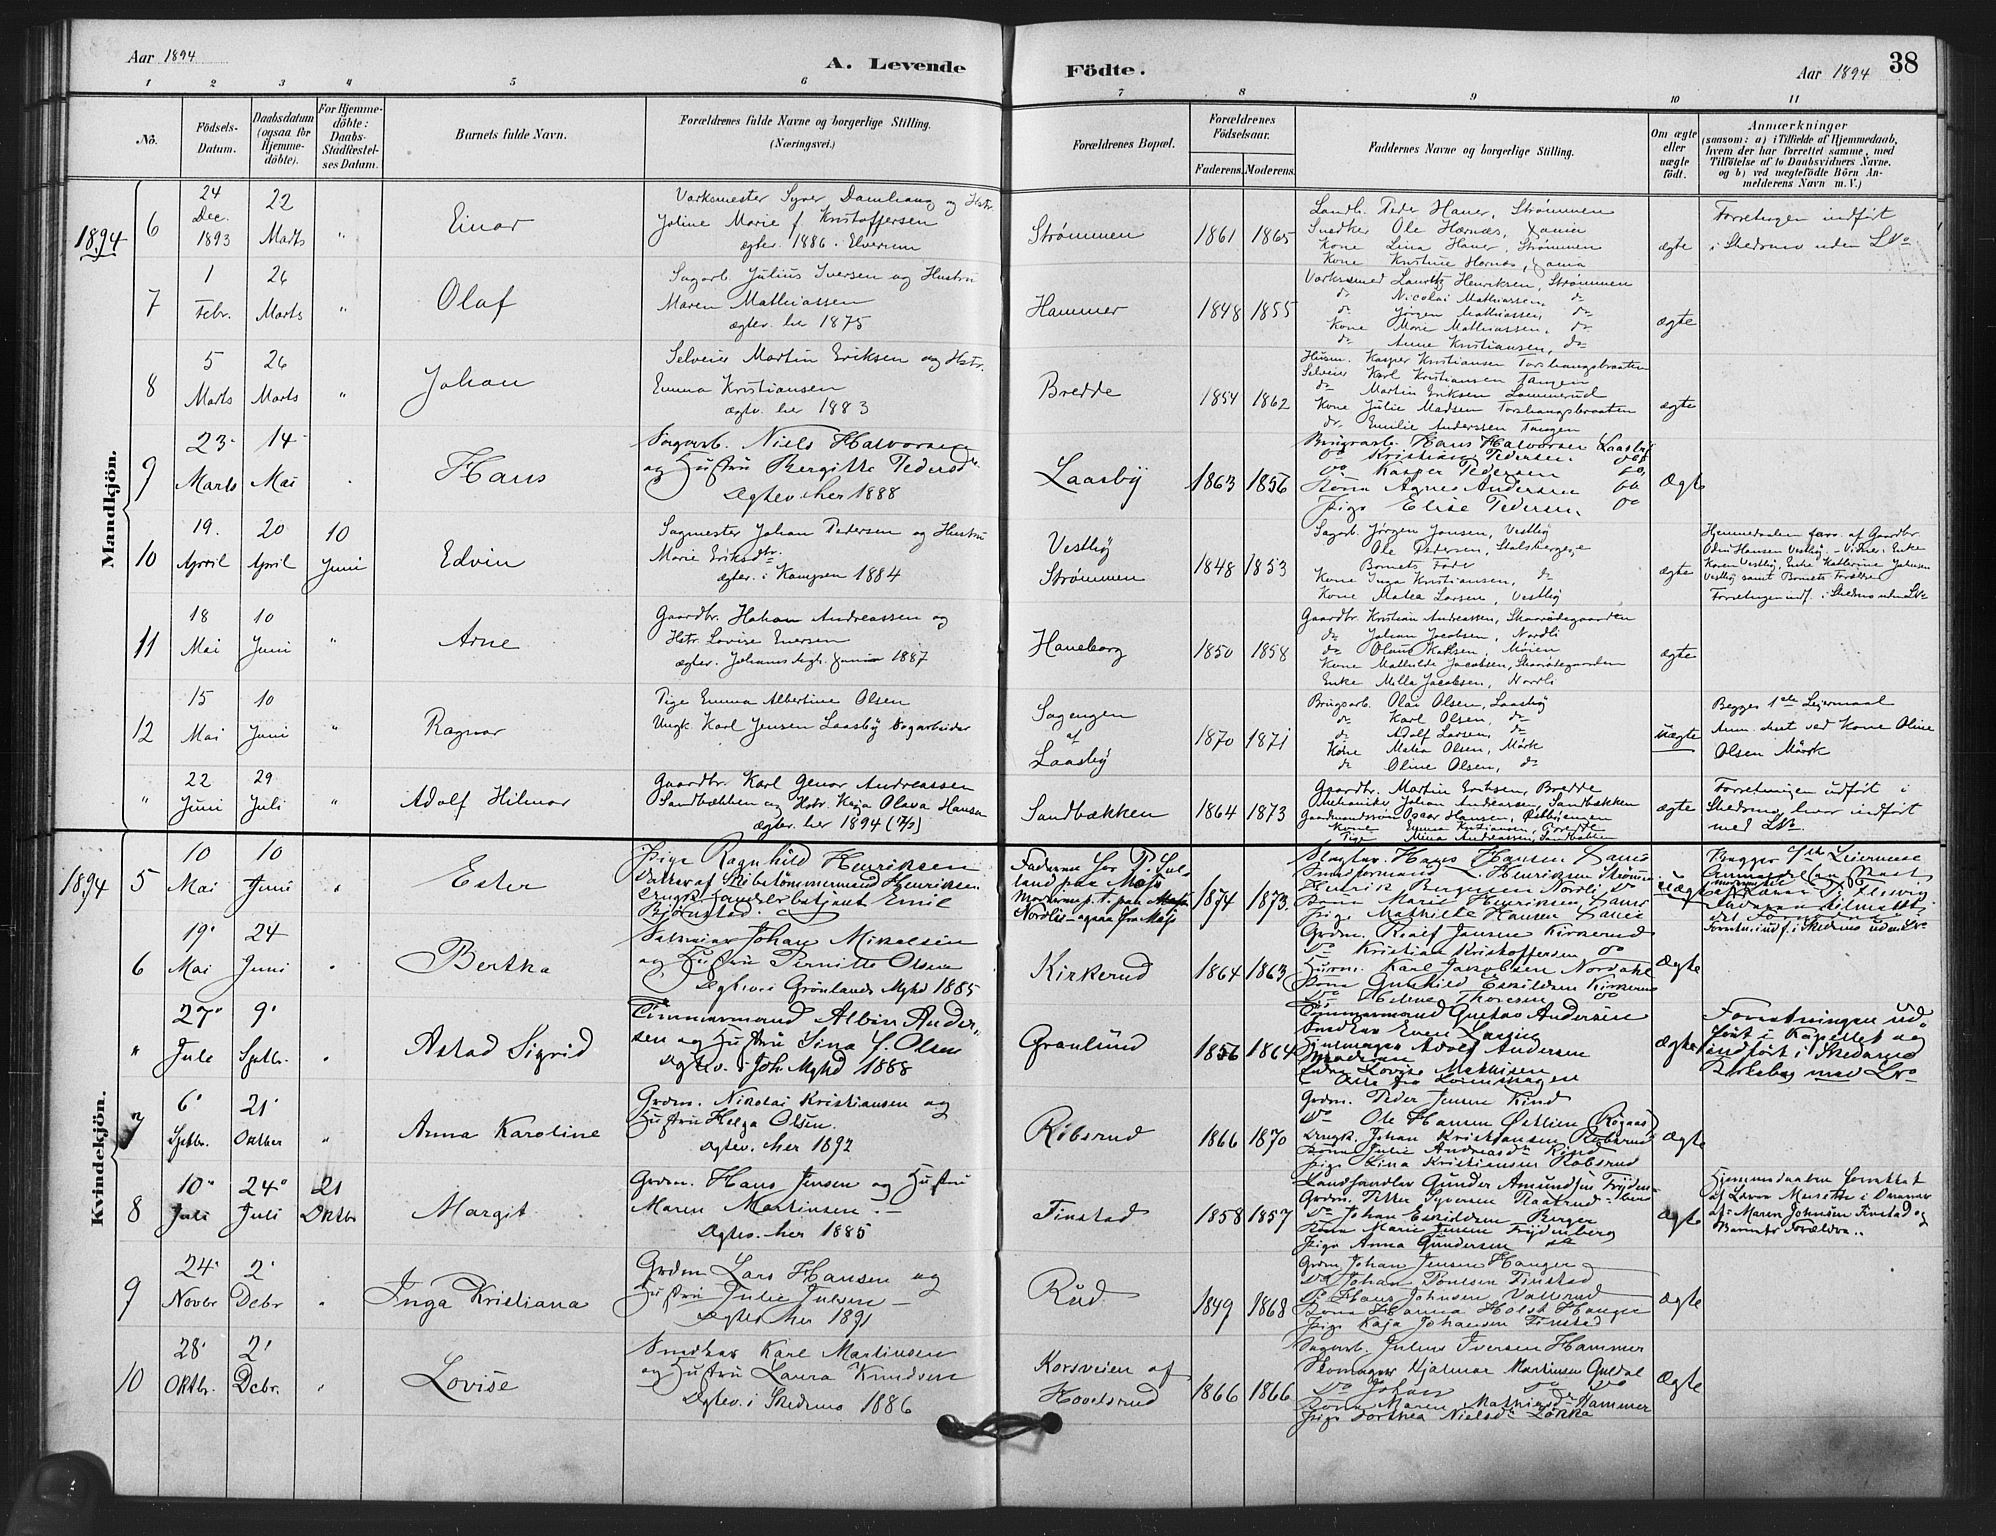 Aar 1894
A. Levende
Födte.
Aar 1894
38
1 2 3 4 5 6 7 8 9 10 11
No.
Födsels-
Datum.
Daabsdatum
(ogsaa for
Hjemme-
döbte).
For Hjemme-
döbte:
Daabs-
Stadfæstel-
ses Datum.
Barnets fulde Navn.
Forældrenes fulde Navne og borgerlige Stilling.
(Næringsvei.)
Forældrenes Bopæl.
Forældrenes
Födselsaar.
Faderens. Moderens.
Faddernes Navne og borgerlige Stilling.
Om ægte
eller
uægte
födt.
Anmærkninger
(saasom: a) i Tilfælde af Hjemmedaab,
hvem der har forrettet samme, med
Tilföielse af to Daabsvidners Navne.
og b) ved uægtefödte Börn An-
melderens Navn m. V.)
Mandkjön.
1894
6
24
Dec.
1893
22
Marts
"
Einar
Værksmester Syver Damhaug og Hstr.
Joline Marie f. Kristoffersen
ægtev. 1886. Elverum
Strømmen
1861 1865
Landh. Peder Haner, Strømmen
Snedker Ole Hærnæs,
Kone Lina Haner, Strømmen
Kone Kristine Hornæs,
ægte
Forretningen indført
i Skedsmo uden L№
7
1
Febr.
26
Marts
"
Olaf
Sagarb. Julius Iversen og Hustru
Maren Mathiassen
ægtev. her 1875
Hammer
1848 1855
Værksmed Lauritz Henriksen, Strømmen
do Nicolai Mathiassen, do
do Jørgen Mathiassen, do
Kone Marie Mathiassen, do
do Anne Kristiansen, do
ægte
8
5
Marts
26
Marts
"
Johan
Selveier Martin Eriksen og Hstr.
Emma Kristiansen
ægtv. her 1883
Bredde
1854 1862
Husm. Kasper Kristiansen Torshaugbraaten
Selveier Karl Kristiansen Tangen
do Martin Eriksen Lammerud
Kone Julie Madsen Torshaugsbraaten
do. Emilie Anderssen Tangen
ægte
9
23
Marts
14
Mai
Hans
Sagarb. Niels Halvorsen
og Hustru Bergitte Pedersdr.
Ægtev. her 1888
Laasby
1863 1856
Brugsarb. Hans Halvorsen Laasby
do Kristian Pedersen. do
do Kasper Pedersen do
Kone Agnes Andersen do
Pige Elise Pedersen, do
Ægte
10
19.
April
20
April
10
Juni
Edvin
Sagmester Johan Pedersen og Hustru
Marie Eriksdtr.
ægtev. i Kampen 1884
Vestby
Strømmen
1848 1853
Sagarb. Jørgen Jensen, Vestby
Ole Pedersen, Stalsbergeje
Barnets Fader
Kone Inga Kristiansen, do
Kone Matea Larsen, Vestby
ægte
Hjemmedaaben forr. af Gaardbr.
Odin Hansen Vestby. - Vidner: Enke
Karen Vestby, Enke Kathrine Johnsen
Vestby samt Barnets Forældre
Forretningen indf. i Skedsmo uden L№
11
18
Mai
10
Juni
"
Arne
Gaardbr. Johan Andreassen og
Hstr. Lovise Enersen
ægtev. Johannes Kgh. 1887
Haneborg
1850 1858
Gaardbr. Kristian Andreassen, Skaarødegaarden
do Johan Jacobsen, Nordli
do Olaus Karlsen, Moien
Kone Mathilde Jacobsen, Skarødegaarden
Enke Milla Jacobsen, Nordli
ægte
12
15
Mai
10
Juni
"
Ragnar
Pige Emma Albertine Olsen
Ungk. Karl Jensen Laasby Sagarbeider
Sagengen
af
Laasby
1870 1871
Brugsarb. Olai Olsen, Laasby
do Karl Olsen, do
do Adolf Larsen, do
Kone Matea Olsen, Mørk
do Oline Olsen, do
uægte
Begges 1ste Leiermaal
Anm. skeet ved Kone Oline
Olsen Mørk
"
22
Juni
29
Juli
"
Adolf Hilmar
Gaardbr. Karl Genar Andreassen
Sandbækken og Hstr. Kaja Olava Hansen
ægtev. her 1894
Sandbækken
1864 1873
Gaardbr. Martin Eriksen, Bredde
Mekaniker Johan Andreassen, Sandbækken
Gaardmandssøn Oscar Hansen,
Kone Emma Kristiansen, Bredde
Pige Mina Andreassen, Sandbækken
ægte
Forretningen udført i
Skedsmo, hvor indført
med L№
Kvindekjön.
1894
5
10
Mai
10
Juni
"
Ester
Pige Ragnhild Henriksen
Datter af Skibstømmermand Henriksen.
Ungk. Handelsbetjent Emil
Bjørnstad.
1874 1873.
Slagter Hans Hansen
Henrik Bergersen Nordli do
Kone Marie Henriksen,
Pige Mathilde Hansen
uægte
Begges 1ste Leiermaal
6
19
Mai
24
Juni
Bertha
Selveier Johan Mikalsen
og Hustru Pernille Olsen
Ægtev. i Grönlands Mghd 1885
Kirkerud
1864 1863
Grdm. Roalf Jensen Kirkerud
do Kristian Kristoffersen do
Husm. Karl Jakobsen Nordahl
Kone Gunhild Eskildsen Kirkerud
do Helene Thoresen do
Ægte
"
27
Juli
9
Septbr.
"
Astad Sigrid
Timmermand Albin Ander-
sen og Hustru Lina f. Olsen
Ægtev. i Joh. Mghd 1888
Granlund
1856 1864
Tømmermand Gustav Andersen
Snedker Even Larsen
Adolf Andersen
Moderen
Enke Lovise Mathisen
Ægte
Forretningen ud-
ført i Kapellet og
indført i Skedsmo
Kirkebog med L№
7
6
Septbr.
21
Oktber
"
Anna Karoline
Grdm. Nikolai Kristiansen og
Hustru Helga Olsen.
Ægtev. her 1892
Röbsrud
1866 1870
Grdm. Peder Jensen Rind
do Ole Hansen Østlien (Rögaas)
Ungk. Johan Kristiansen Röbsrud
Kone Julie Andreasdr. Rind
Pige Lina Kristiansen Röbsrud
Ægte
8
10
Juli
24
Juli
21
Oktbr
Margit
Grdm. Hans Jensen og Hustru
Maren Martinsen. —
Ægtev. her 1885
Finstad
1858 1857
Landhandler Gunder Amundsen Frydenberg
Grdm. Petter Syversen Raakrud
do Johan Eskildsen Berger
Kone Marie Jensen Frydenberg
Pige Anna Gundersen do
Ægte
Hjemmedaaben forrettet
af Maren Johnsen Finstad og
Barnets Forældre..
9
24
Novbr
2
Debr
"
Inga Kristiana
Grdm Lars Hansen og
Hustru Julie Julsen —
Ægtev. her 1891
Rud
1849 1868
Grdm Johan Jensen Hauger
do Johan Poulsen Finstad
do Hans Johnsen Vallerud
Kone Hanna Holst Hauger
Pige Kaja Johansen Finstad
Ægte
10
28
Oktbr.
2
Debr.
"
Lovise
Snedker Karl Martinsen
og Hustru Laura Knudsen
Ægtev. i Skedsmo 1886
Korsveien af
Hovelsrud
1866 1866
Sagarb. Julius Iversen Hammer
Skomager Hjalmar Martinsen Guldal
do Johan do do
Kone Maren Mathiasdr Hammer
Pige Dorthea Nielsdr Løkka
Ægte